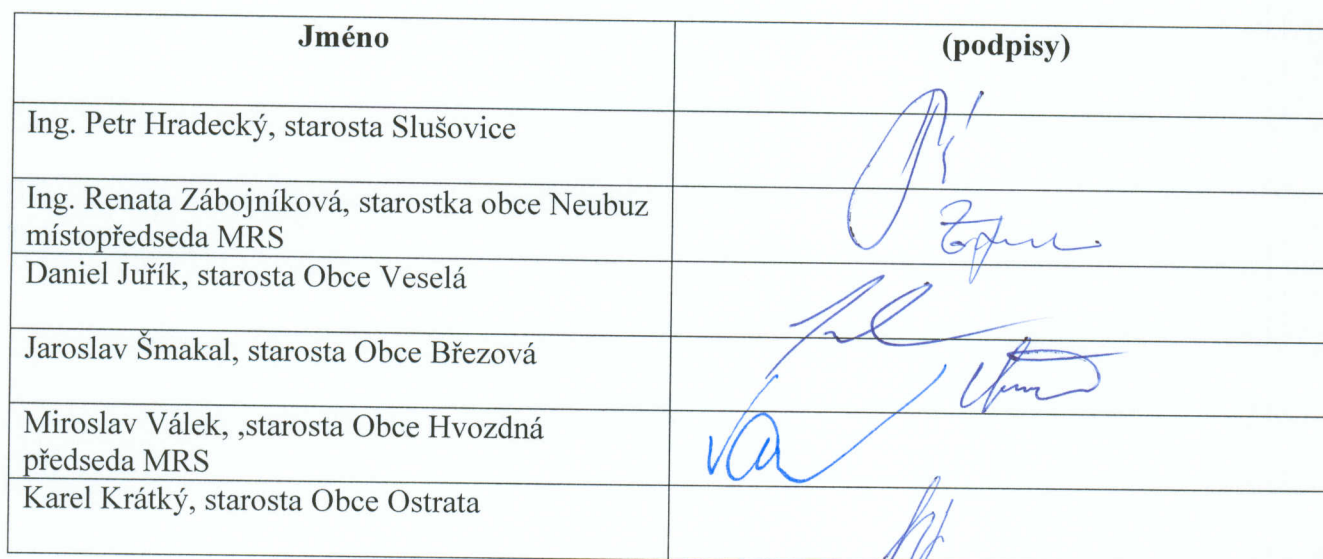 Jméno
(podpisy)
Ing. Petr Hradecký, starosta Slušovice
Ing. Renata Zábojníková, starostka obce Neubuz
místopředseda MRS
Daniel Juřík, starosta Obce Veselá
Jaroslav Šmakal, starosta Obce Březová
Miroslav Válek, ,starosta Obce Hvozdná
předseda MRS
Karel Krátký, starosta Obce Ostrata